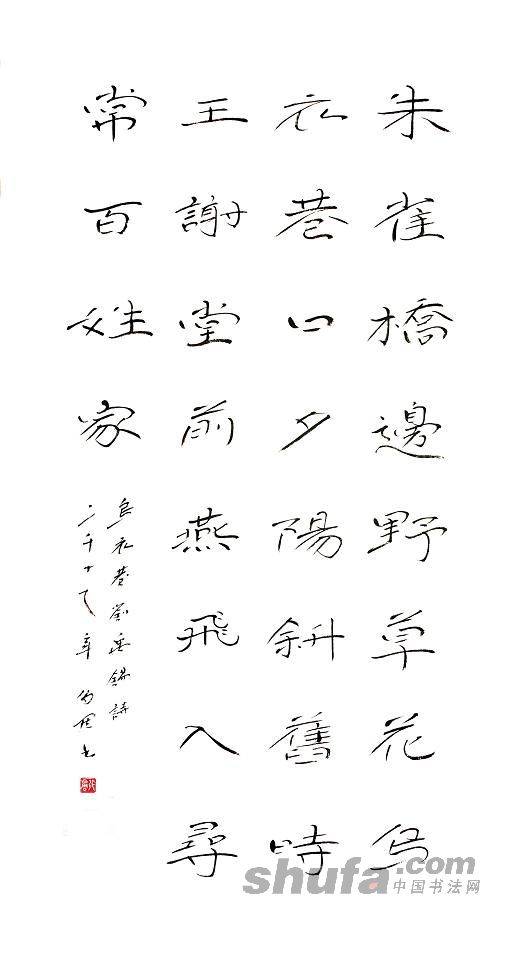 朱雀橋邊野草花烏
衣巷口夕陽斜舊時
王謝堂前燕飛入尋
常百姓家
烏衣巷劉禹錫詩
二千十
shufa.com
中国书法网